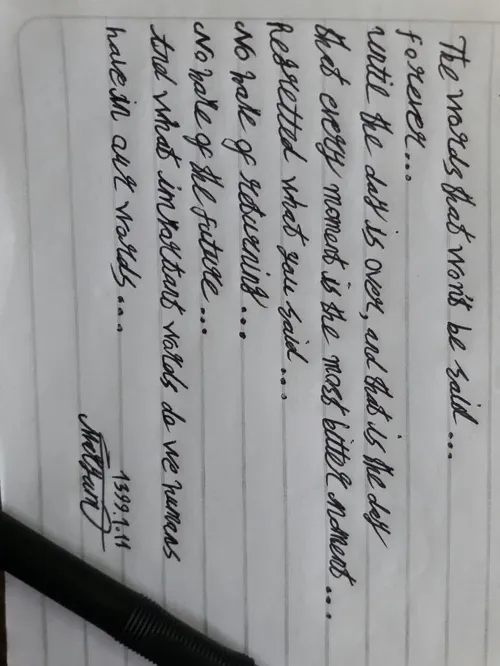 The words that won't be said...
forever...
until the day is over, and that is the day
that every moment is the most bitter moment...
Regretted what you said...
No hope of returning...
No hope of the future...
And what important words do we humans
have in our words...
1399.1.11